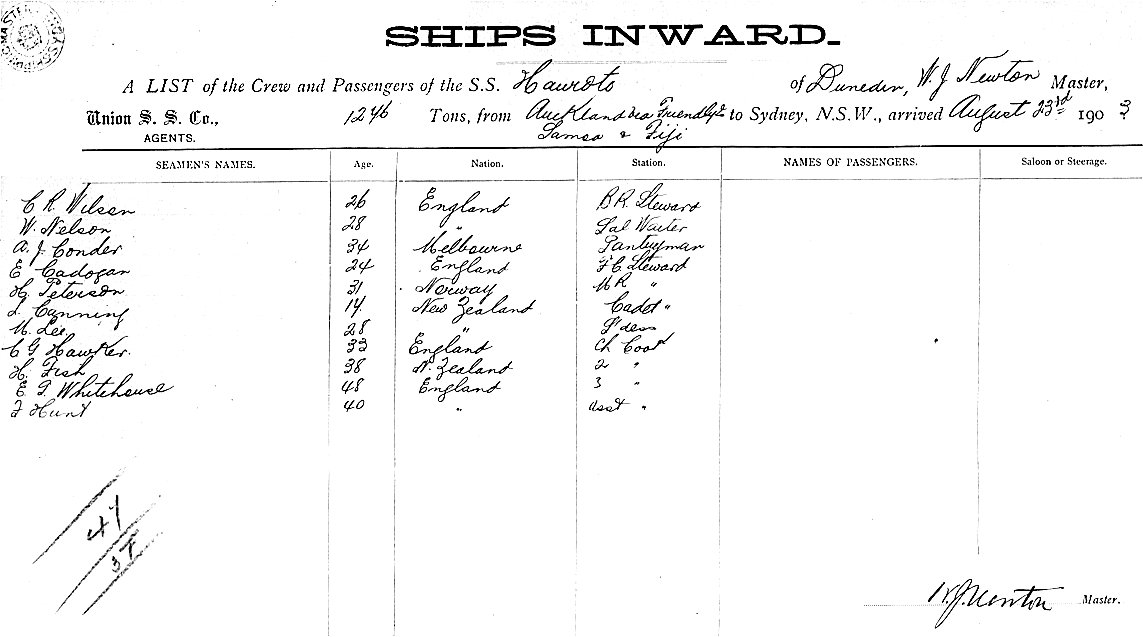 SHIPS INWARD.
A LIST of the Crew and Passengers of the S.S. Hauroto of Dunedin, W. J. Newton Master,
Union S. S. Co., 1276 Tons, from Auckland via Friendly Is to Sydney, N.S.W., arrived August 23rd 1903
AGENTS. Samoa & Fiji
SEAMEN'S NAMES. Age. Nation. Station. NAMES OF PASSENGERS. Saloon or Steerage.
C R Wilson 26 England B.R. Steward
W. Nelson 28 " Sal Waiter
A. J. Conder 34 Melbourne Pantryman
E Cadogan 24 England F C Steward
H. Peterson 31 Norway M R "
Canning New Zealand Cadet "
M. Lee. 28 " S'dess
C G Hawker. 33 England Ch Cook
H. Fish 38 N. Zealand 2 "
E Whitehouse 48 England 3 "
Hunt 40 " Asst "
47
37
W. J. Newton Master.